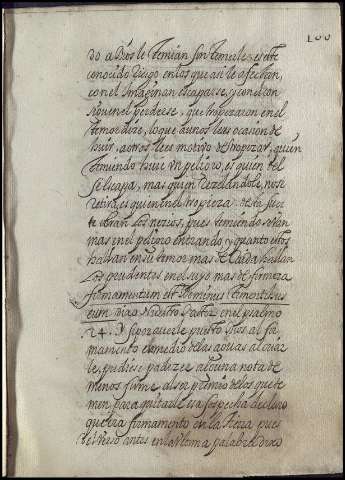 100
do a Dios le temian sin temerle: es este
conocido riesgo en los que asi le afectan,
con el imaginan escaparse, y con el con
siguen el perderse, que tropezaron en el
temor dize, lo que a unos les es ocasion de
huir, a otros les es motivo de tropezar, quien
temiendo huie un peligro, es quien del
se escapa, mas quien rezelandole, no se
retira es quien en el tropieza: desta suer
te obran los necios, pues temiendo se van
mas en el peligro entrando y quanto estos
hallan en su temor mas de caida hallan
los prudentes en el suyo mas de firmeza
firmamentum est Dominus timentibus
eum dixo nuestro Pastor en el psalmo
24. Y si por averle puesto Dios al fir
mamento en medio de las aguas al criar
le, pudiese padezer alguna nota de
menos firme al ser premio de los que te
men para quitarle esa sospecha declaro
que era firmamento en la tierra pues
el verso antes en la ultima palabra dixo